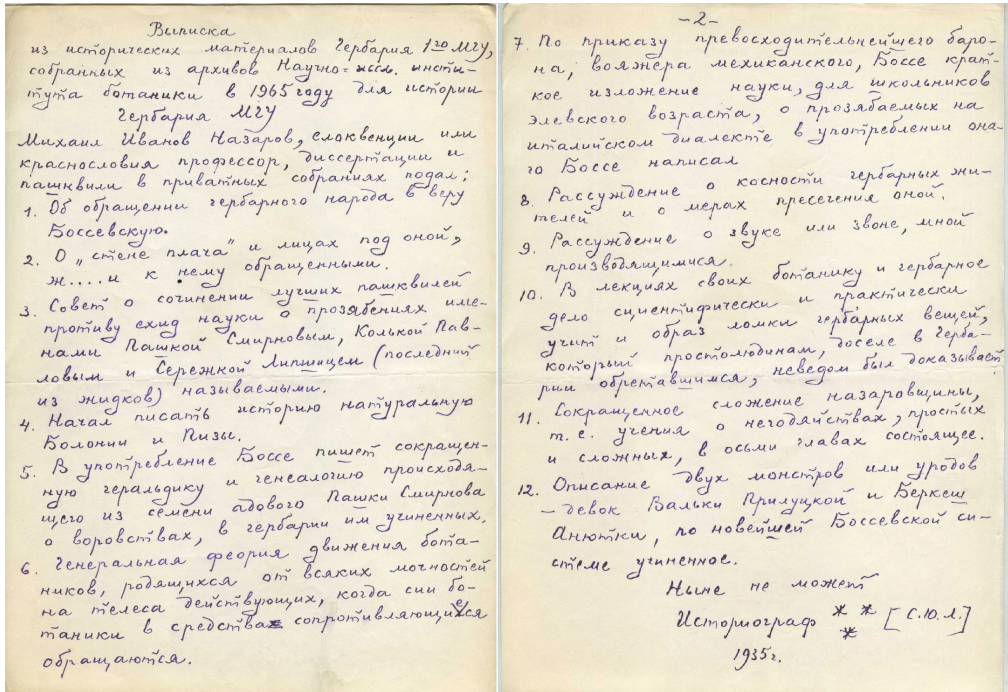 Выписка
из исторических материалов Гербария 1го МГУ,
собранных из архивов Научно=иссл. инсти-
тута ботаники в 1965 году для истории
Гербария МГУ
Михаил Иванов Назаров, елоквенции или
краснословия профессор, диссертации и
пашквили в приватных собраниях подал:
1. Об обращении гербарного народа в веру
Боссевскую.
2. О „стене плача" и лицах под оной,
ж....и к нему обращенными.
3. Совет о сочинении лучших пашквилей
противу ехид науки о прозябениях име-
нами Пашкой Смирновым, Колькой Пав-
ловым и Сережкой Липшицем (последний
из жидков) называемыми.
4. Начал писать историю натуральную
Болонии и Пизы.
5. В употребление Боссе пишет сокращен-
ную геральдику и генеалогию происходя-
щего из семени адового Пашки Смирнова
о воровствах, в гербарии им учиненных.
6. Генеральная феория движения бота-
ников, родящихся от всяких мочностей
на телеса действующих, когда сии бо-
таники в средства сопротивляющиеся
обращаются.
-2-
7. По приказу превосходительнейшего баро-
на, вояжера мехиканского, Боссе крат-
кое изложение науки, для школьников
элевского возраста, о прозябаемых на
италийском диалекте в употреблении она-
го Боссе написал
8. Рассуждение о косности гербарных жи-
телей и о мерах пресечения оной.
9. Рассуждение о звуке или звоне, мной
производящимся.
10. В лекциях своих ботанику и гербарное
дело сциентифически и практически
учит и образ ломки гербарных вещей,
который простолюдинам, доселе в Герба-
рии обретавшимся, неведом был доказывает
11. Сокращенное сложение назаровщины,
т.е. учения о негодяйствах, простых
и сложных, в осьми главах состоящее.
12. Описание двух монстров или уродов
– девок Вальки Прилуцкой и Беркеш
Анютки, по новейшей Боссевской си-
стеме учиненное.
Ныне не может
Историограф * * * [С.Ю.Л.]
1935г.